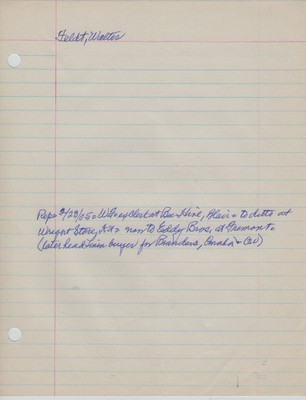 Feldt, Walter
Pepo 9/28/05 = WF ex clerk at Bee-Hive, Blair = to ditto at
Wright Store, = now to Eddy Bros, at Fremont =
(later head linen buyer for Brandeis, Omaha =